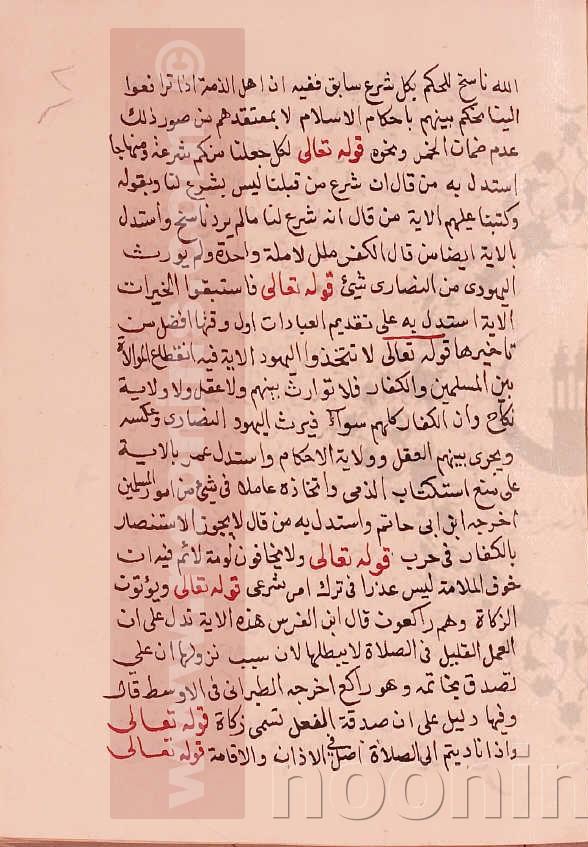 الله ناسخ للحكم بكل شرع سابق ففيه ان اهل الذمة اذا ترافعوا
الينا يحكم بينهم باحكام الاسلام لا بمعتقدهم من صور ذلك
عدم ضمان الخمر ونحوه قوله تعالى لكل جعلنا منكم شرعة ومنهاجا
استدل به من قال ان شرع من قبلنا ليس بشرع لنا وبقوله
وكتبنا عليهم الاية من قال انه شرع لنا مالم يرد ناسخ واستدل
بالاية ايضا من قال الكفر ملل لا ملة واحدة ولم يورث
اليهودى من النصارى شيئ قوله تعالى فاستبقوا الخيرات
الاية استدل به على تقديم العبادات اول وقتها افضل من
تاخيرها قوله تعالى لا تتخذوا اليهود الاية فيه انقطاع الموالاة
بين المسلمين والكفار فلا توارث بينهم ولا عقل ولا ولاية
نكاح وان الكفار كلهم سواء فيرث اليهود النصارى وعكسه
ويجرى بينهم العقل وولاية الاحكام واستدل عمر بالاية
على منع استكتاب الذمى واتخاذه عاملا فى شيئ من امور المسلمين
اخرجه ابن ابى حاتم واستدل به من قال لا يجوز الاستنصار
بالكفار فى حرب قوله تعالى ولا يخافون لومة لائم فيه ان
خوف الملامة ليس عذرا فى ترك امر شرعى قوله تعالى ويؤتون
الزكاة وهم راكعون قال ابن الفرس هذه الاية تدل على ان
العمل القليل فى الصلاة لا يبطلها لان سبب نزولها ان علي
تصدق بخاتمه وهو راكع اخرجه الطبرانى فى الاوسط قال
وفيها دليل على ان صدقة الفعل تسمى زكاة قوله تعالى
واذا ناديتم الى الصلاة اصل فى الاذان والاقامة قوله تعالى
noonin